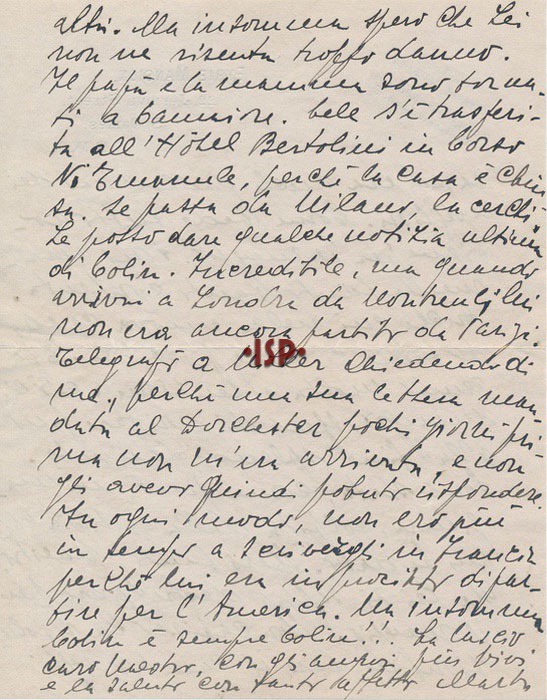 altri. Ma insomma spero che Lei
non ne risenta troppo danno.
Il papà e la mamma sono torna-
ti a Canniore. Cele s'è trasferi-
ta all'Hôtel Bertolini in Corso
V. Emanuele, perchè la casa è chiu
sa. Se passa da Milano, la cerchi-
Le posso dare qualche notizia ultima
di Colin. Incredibile, ma quando
arrivai a Londra da lui
non era ancora partito da Parigi.
Telegrafò a chiedendo di
me, perchè una sua lettera man
data al Dorchester pochi giorni pri
ma non m'era arrivata, e non
gli avevo quindi potuto rispondere.
In ogni modo, non ero più
in tempo a scrivergli in Francia
perchè lui era in procinto di par-
tire per l'America. Ma insomma
Colin è sempre Colin!.. La lascio
caro Maestro, con gli auguri più vivi
e la saluto con tanto affetto
·ISP·